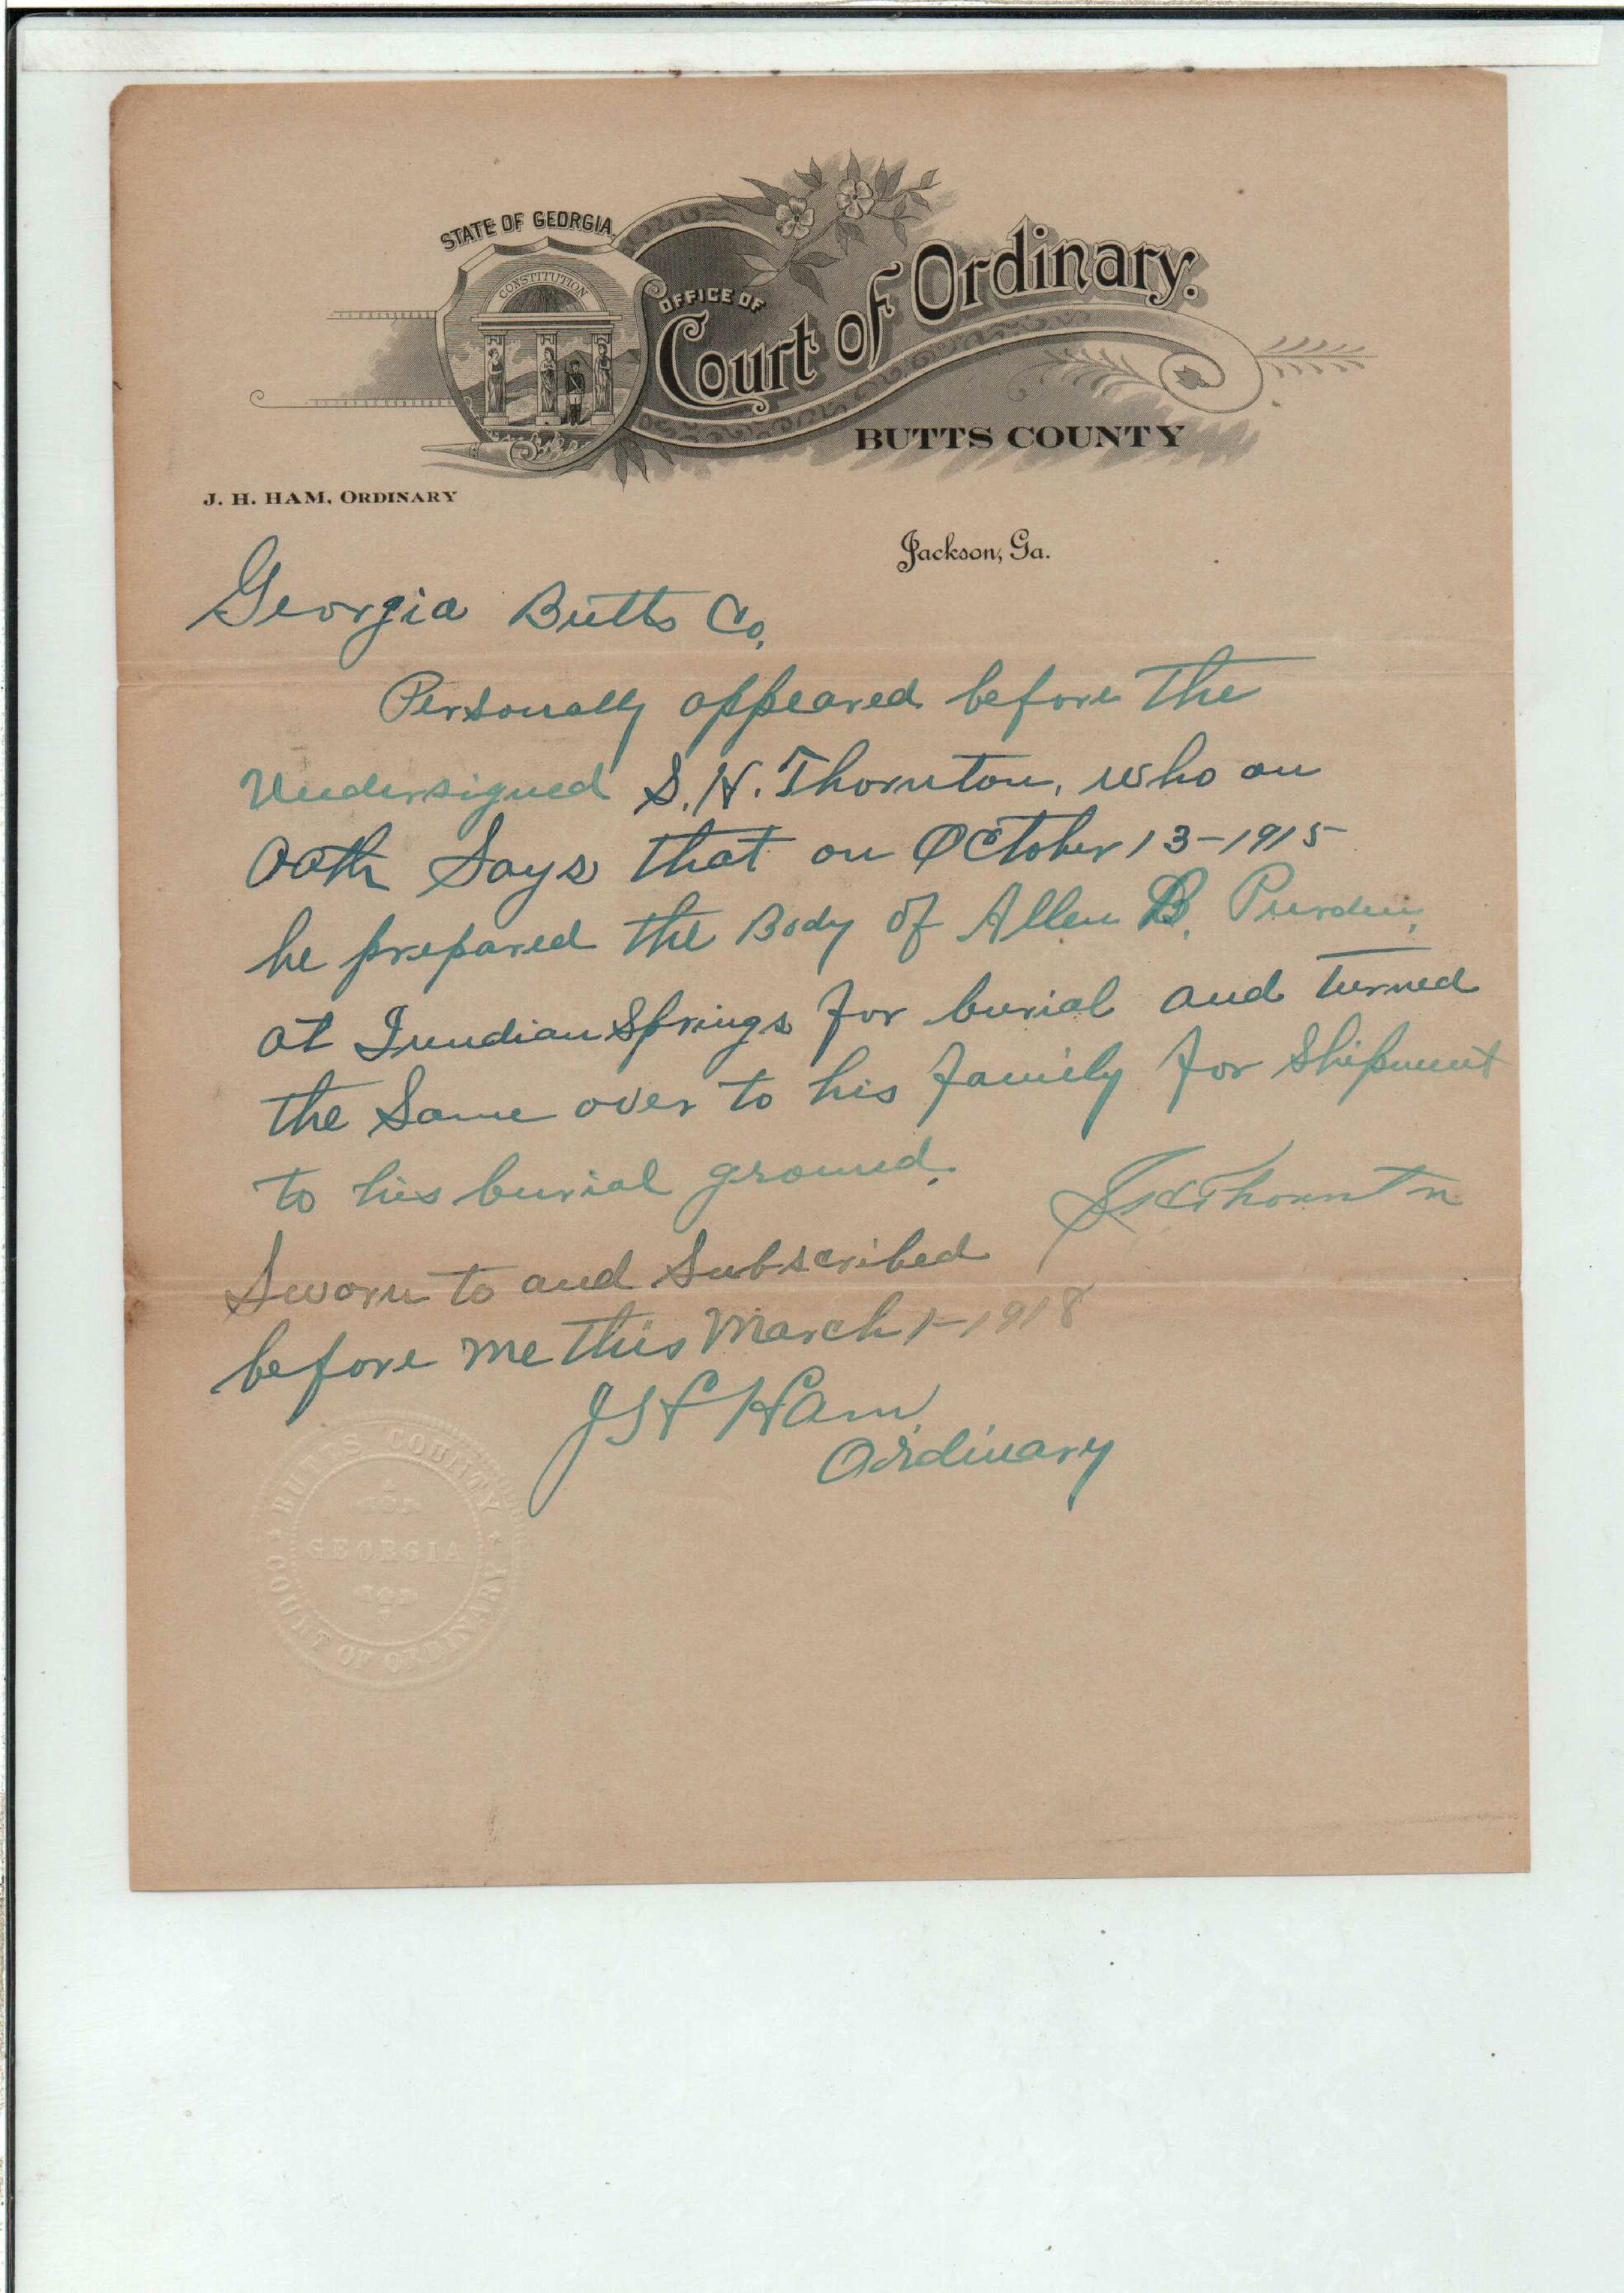 STATE OF GEORGIA.
CONSTITUTION
OFFICE OF
Court of Ordinary.
BUTTS COUNTY
J. H. HAM, ORDINARY
Jackson, Ga.
Georgia Butts Co.
Personally appeared before The
Undersigned S. H. Thornton, who on
Oath Says that on October 13-1915
he prepared the Body of Allen B. Purdew,
at Inndian Springs for burial and turned
the Same over to his family for Shipment
to his burial ground.
Thornton
Sworn to and Subscribed
before me this March 1-1918
J H Ham
Ordinary
BUTTS COUNTY
GEORGIA
COURT OF ORDINARY